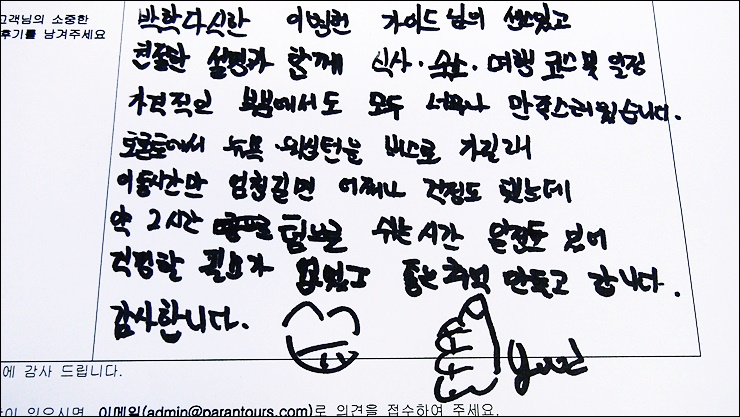 고객님의 소중한
후기를 남겨주세요
박학다식한 이병헌 가이드님의 센스있고
친절한 설명과 함께 식사·숙소·여행 코스 및 일정
가격적인 부분에서도 모두 너무나 만족스러웠습니다.
토론토에서 뉴욕·워싱턴을 버스로 가길래
이동시간만 엄청길면 어쩌나 걱정도 했는데
약 2시간 텀으로 쉬는시간 일정도 있어
걱정할 필요가 없었고 좋은 추억 만들고 갑니다.
감사합니다.
에 감사 드립니다.
이 있으시면, 이메일(admin@parantours.com)로 의견을 접수하여 주세요.